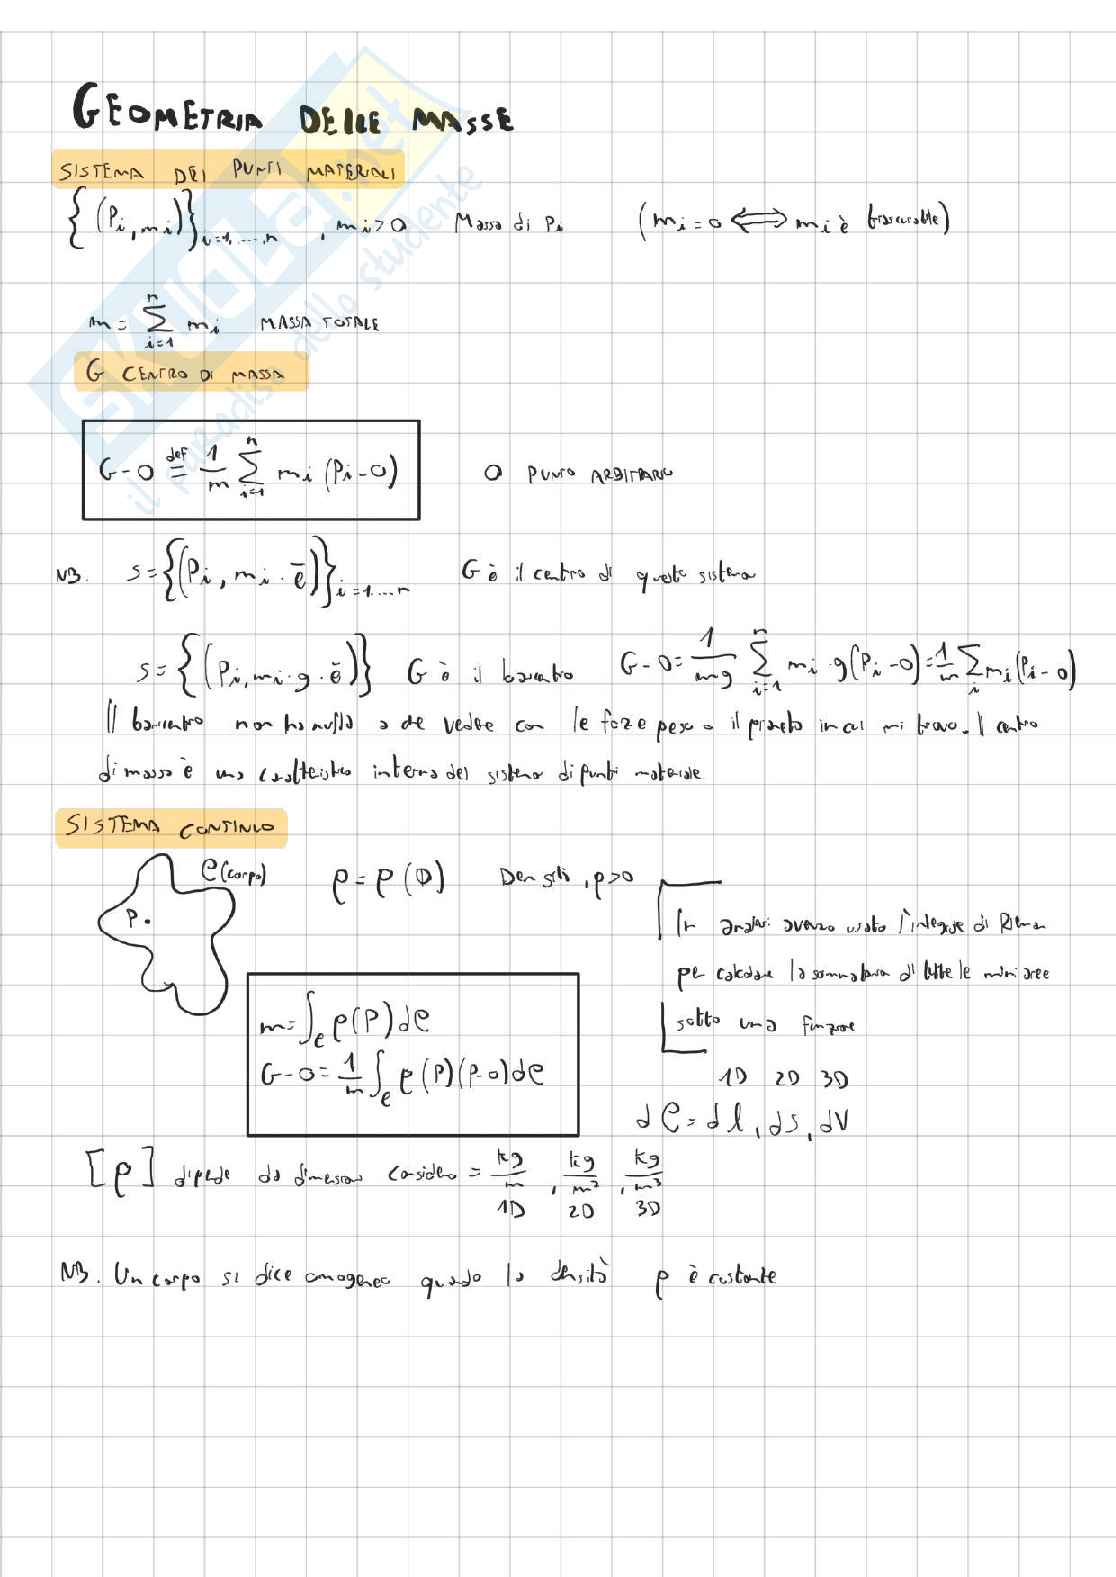 GEOMETRIA DELLE MASSE
SISTEMA DEI PUNTI MATERIALI
{(Pi, mi)}i=1,...,n , mi>0 Massa di Pi (mi=0 ⟺ mi è trascurabile)
m = Σ_{i=1}^{n} mi MASSA TOTALE
G CENTRO DI MASSA
G-O def= 1/m Σ_{i=1}^{n} mi (Pi-O) O PUNTO ARBITRARIO
NB. s={(Pi, mi·ē)}i=1...n G è il centro di questo sistema
s={(Pi, mi·g·ē)} G è il baricentro G-O= 1/mg Σ_{i=1}^{n} mi·g(Pi-O)= 1/m Σ_i mi(Pi-O)
Il baricentro non ha nulla a che vedere con le forze peso o il pianeta in cui mi trovo. Il centro
di massa è una caratteristica interna del sistema di punti materiale
SISTEMA CONTINUO
C(corpo) ρ=ρ(P) Densità, ρ>0
P.
In analisi avevamo usato l'integrale di Riemann
per calcolare la sommatoria di tutte le mini aree
sotto una funzione
m=∫_C ρ(P)dC
G-O= 1/m ∫_C ρ(P)(P-O)dC
1D 2D 3D
dC = dl, ds, dV
[ρ] dipende da dimensioni considero = kg/m , kg/m² , kg/m³
1D 2D 3D
NB. Un corpo si dice omogeneo quando la densità ρ è costante
SKUOLA.net
il paradiso dello studente